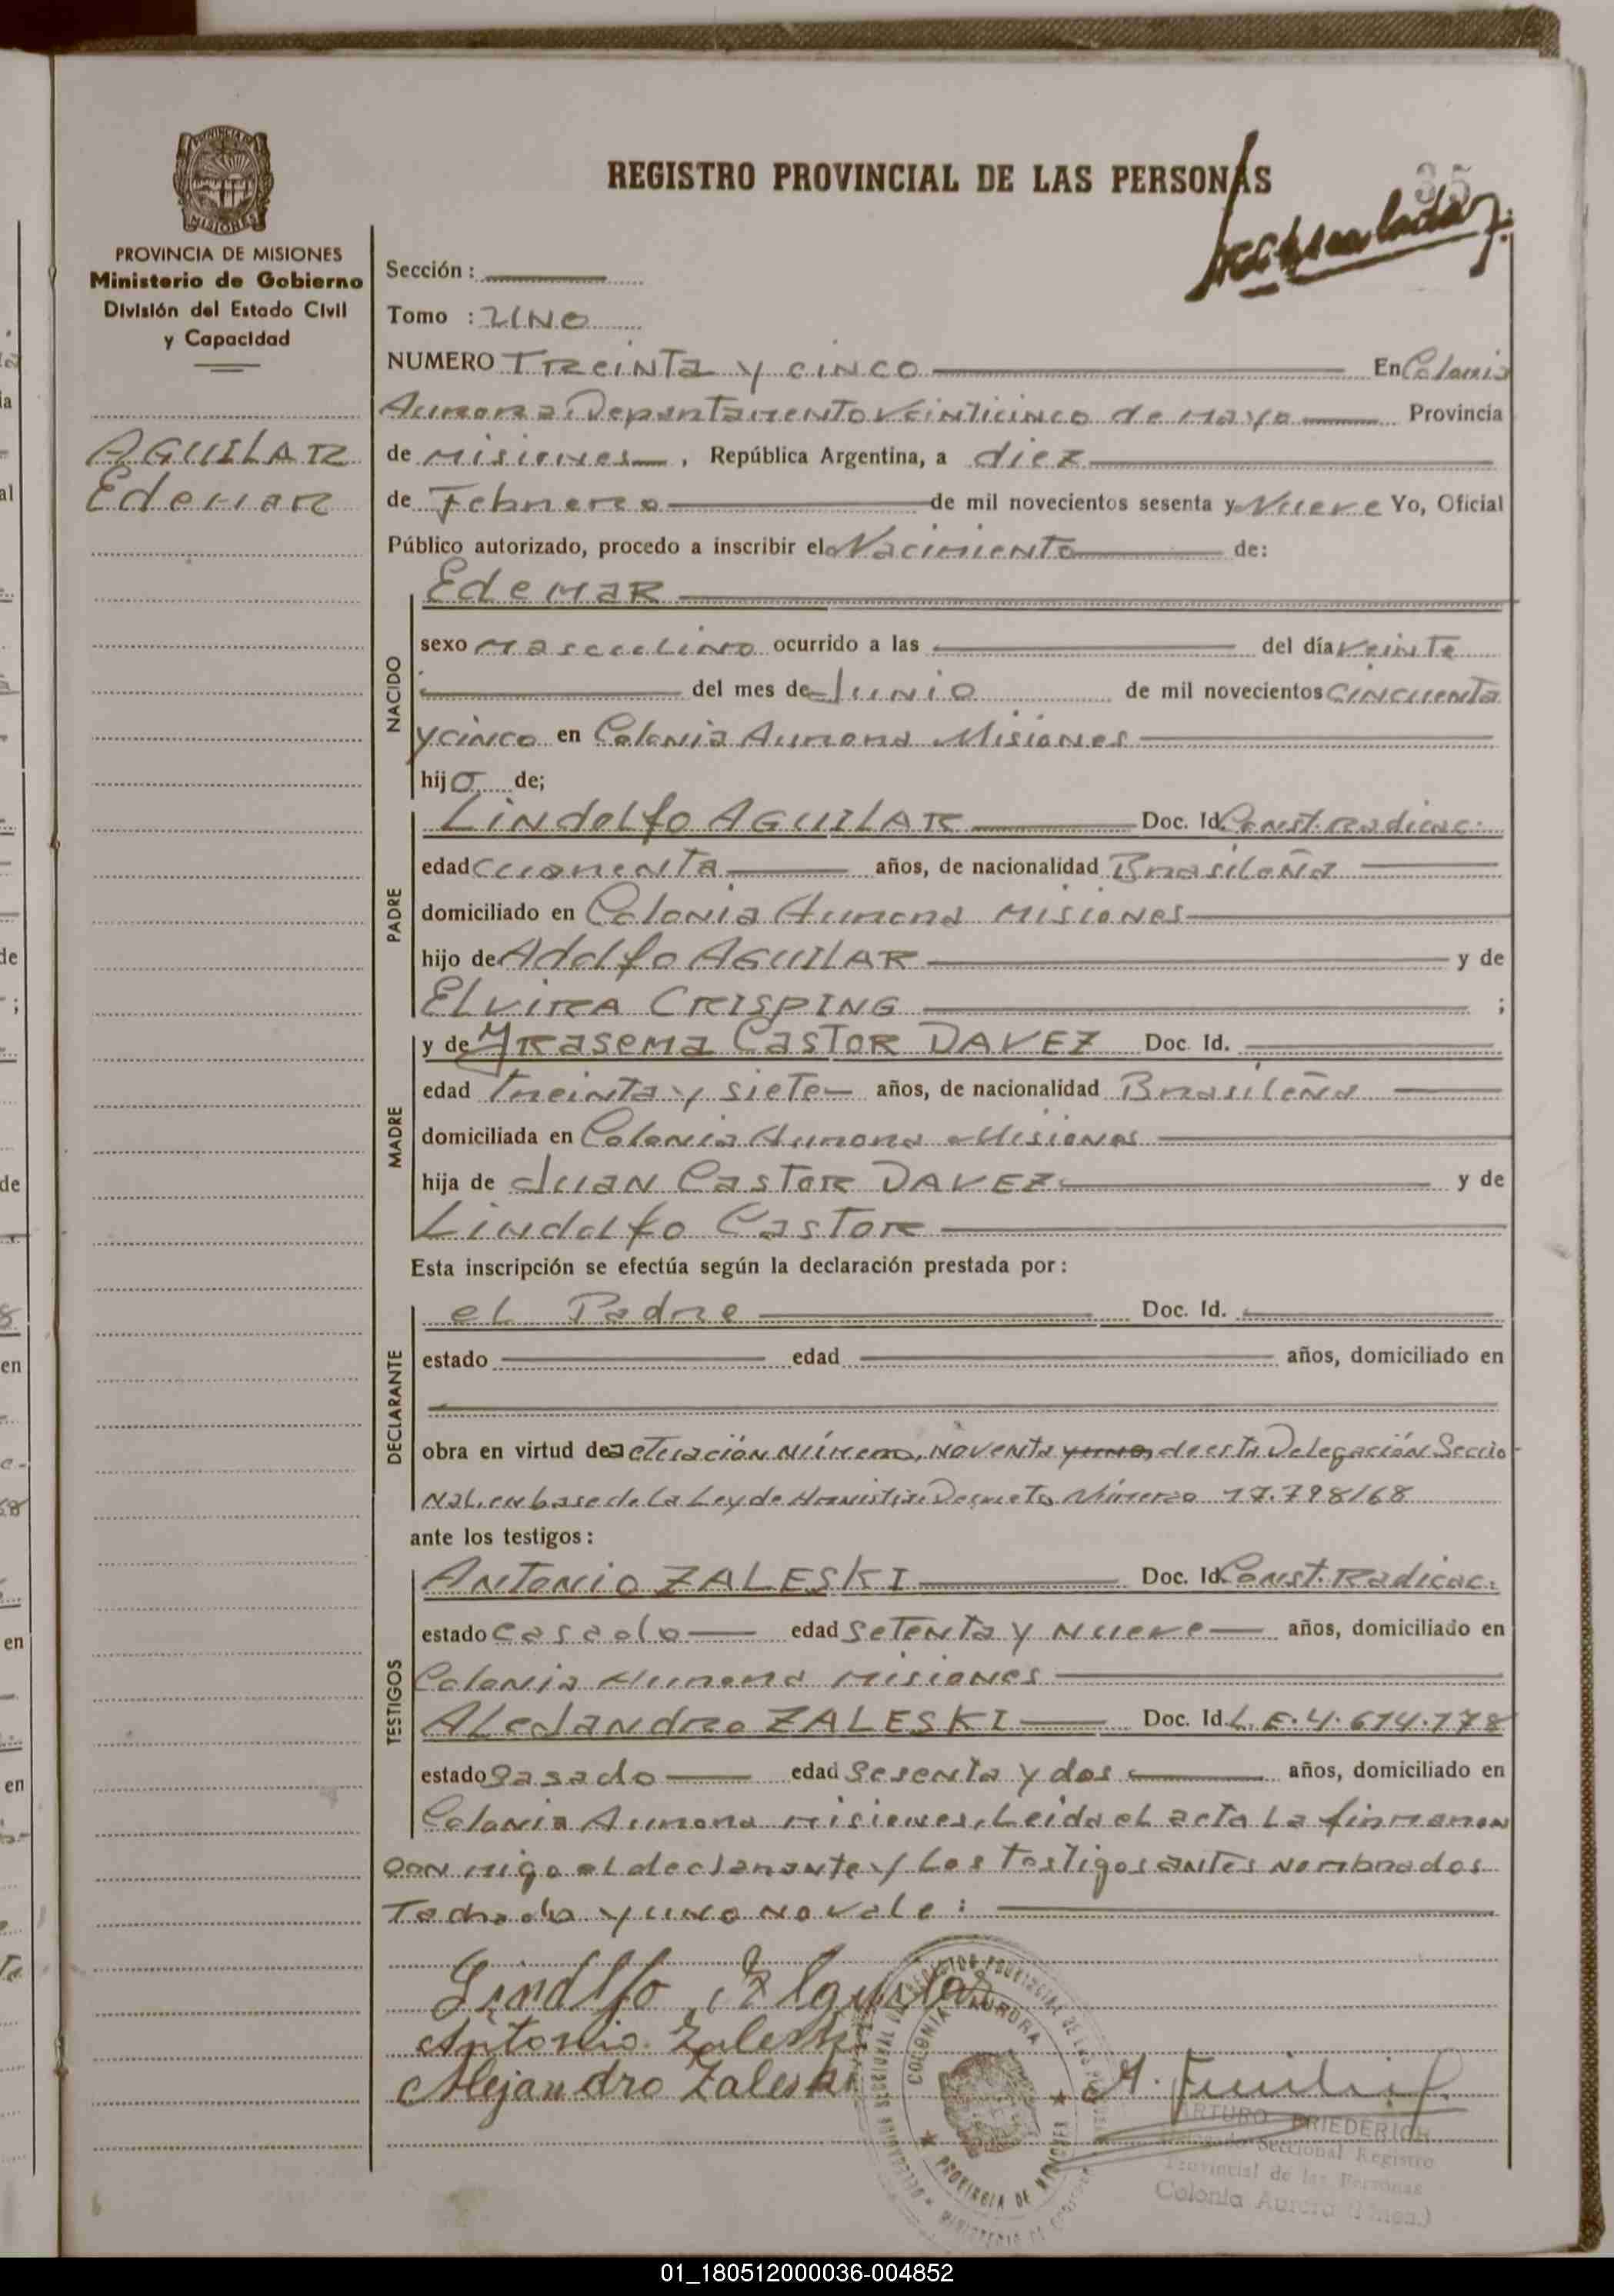 REGISTRO PROVINCIAL DE LAS PERSONAS
35
PROVINCIA DE MISIONES
MISIONES
PROVINCIA DE MISIONES
Ministerio de Gobierno
División del Estado Civil
y Capacidad
AGUILAR
Edemar
Sección :
Tomo : UNO
NUMERO Treinta y cinco En Colonia
Aurora Departamento Veinticinco de Mayo Provincia
de Misiones, República Argentina, a diez
de Febrero de mil novecientos sesenta y Nueve Yo, Oficial
Público autorizado, procedo a inscribir el Nacimiento de:
NACIDO
Edemar
sexo masculino ocurrido a las del día veinte
del mes de Junio de mil novecientos cincuenta
y cinco en Colonia Aurora Misiones
hijo de;
PADRE
Lindolfo AGUILAR Doc. Id. Const. Radicac.
edad cuarenta años, de nacionalidad Brasileña
domiciliado en Colonia Aurora Misiones
hijo de Adolfo AGUILAR y de
Elvira CRISPING ;
MADRE
y de Yrasema Castor DAVEZ Doc. Id.
edad treinta y siete años, de nacionalidad Brasileña
domiciliada en Colonia Aurora Misiones
hija de Juan Castor DAVEZ y de
Lindolfo Castor
Esta inscripción se efectúa según la declaración prestada por :
DECLARANTE
el Padre Doc. Id.
estado edad años, domiciliado en
obra en virtud de actuación número, noventa y uno, de esta Delegación Seccio
nal, en base de la Ley de Amnistia Decreto Número 17.798/68
ante los testigos :
TESTIGOS
Antonio ZALESKI Doc. Id. Const. Radicac.
estado casado edad setenta y nueve años, domiciliado en
Colonia Aurora Misiones
Alejandro ZALESKI Doc. Id. L.E. 4.614.178
estado casado edad sesenta y dos años, domiciliado en
Colonia Aurora Misiones, Leida el acta la firmaron
con migo el declarante y los testigos antes nombrados
Tachado y uno no vale :
Lindolfo Aguilar
Antonio Zaleski
Alejandro Zaleski
COLONIA AURORA
PROVINCIA DE MISIONES
ARTURO FRIEDERICH
Delegado Seccional Registro
Provincial de las Personas
Colonia Aurora (Mnes.)
01_180512000036-004852